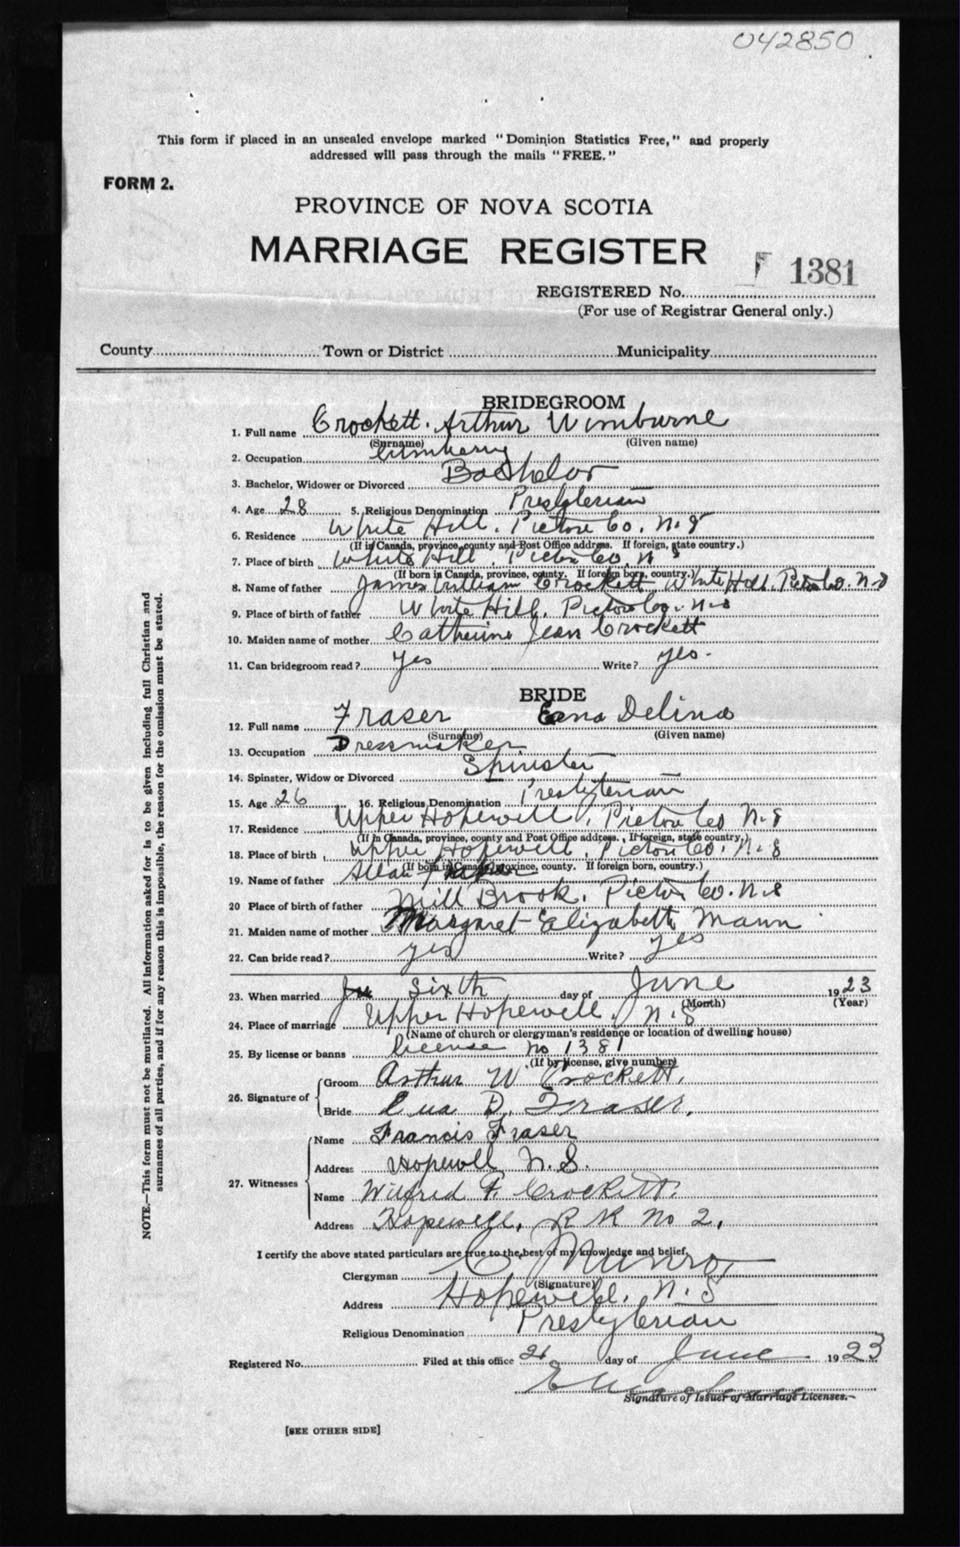 042850
This form if placed in an unsealed envelope marked "Dominion Statistics Free," and properly
addressed will pass through the mails "FREE."
FORM 2.
PROVINCE OF NOVA SCOTIA
MARRIAGE REGISTER
F 1381
REGISTERED No.
(For use of Registrar General only.)
County Town or District Municipality
BRIDEGROOM
1. Full name Crockett. Arthur Wimburne
(Surname) (Given name)
2. Occupation
3. Bachelor, Widower or Divorced Bachelor
4. Age 28 5. Religious Denomination Presbyterian
6. Residence White Hill. Pictou Co. N.S
(If in Canada, province, county and Post Office address. If foreign, state country.)
7. Place of birth White Hill. Pictou Co. N S
(If born in Canada, province, county. If foreign born, country.)
8. Name of father James William Crockett White Hill. Pictou Co. N.S
9. Place of birth of father White Hill. Pictou Co. N.S
10. Maiden name of mother Catherine Jean Crockett
11. Can bridegroom read? Yes Write? yes.
BRIDE
12. Full name Fraser Delina
(Surname) (Given name)
13. Occupation Dressmaker
14. Spinster, Widow or Divorced Spinster
15. Age 26 16. Religious Denomination Presbyterian
17. Residence Upper Hopewell, Pictou Co N.S
(If in Canada, province, county and Post Office address. If foreign, state country.)
18. Place of birth Upper Hopewell, Pictou Co. N.S
(If born in Canada, province, county. If foreign born, country.)
19. Name of father Allan
20 Place of birth of father Mill Brook. Pictou Co. N.S
21. Maiden name of mother Margaret Elizabeth Mann
22. Can bride read? yes Write? yes
23. When married Sixth day of June 1923
(Month) (Year)
24. Place of marriage Upper Hopewell. N.S
(Name of church or clergyman's residence or location of dwelling house)
25. By license or banns license no 1381
(If by license, give number)
26. Signature of
Groom Arthur W Crockett.
Bride Eva D. Fraser.
27. Witnesses
Name Francis Fraser
Address Hopewell N.S.
Name Wilfred F. Crockett.
Address Hopewell. R R No 2.
I certify the above stated particulars are true to the best of my knowledge and belief.
Clergyman C Munro,
(Signature)
Address Hopewell. N.S
Religious Denomination Presbyterian
Registered No. Filed at this office 26 day of June 1923
Signature of Issuer of Marriage Licenses.
[SEE OTHER SIDE]
NOTE.—This form must not be mutilated. All information asked for is to be given including full Christian and
surnames of all parties, and if for any reason this is impossible, the reason for the omission must be stated.